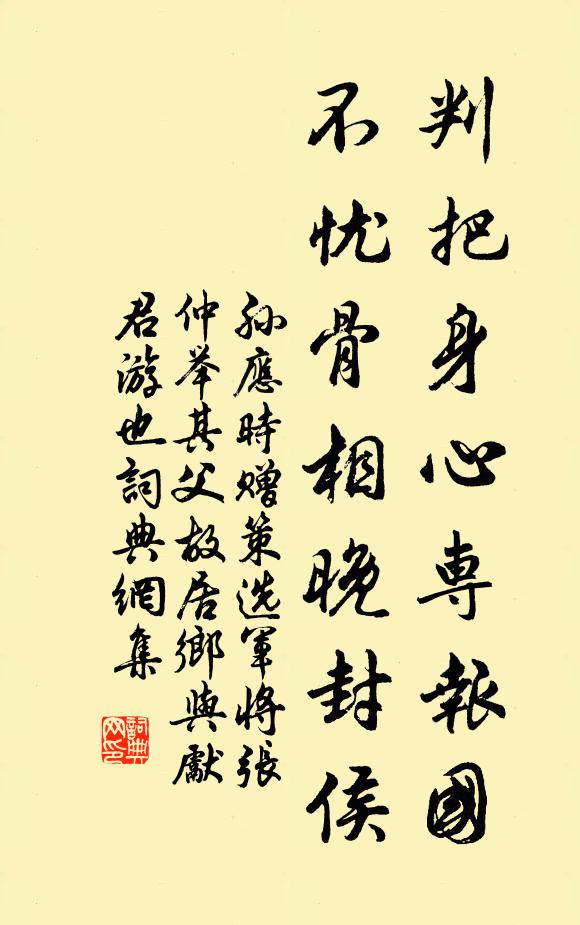 判把身心専報國
不忧骨相晚封侯
孫應時赠策选軍將張
仲举其父故居鄉與獻
君游也詞典網集
詞典
网印